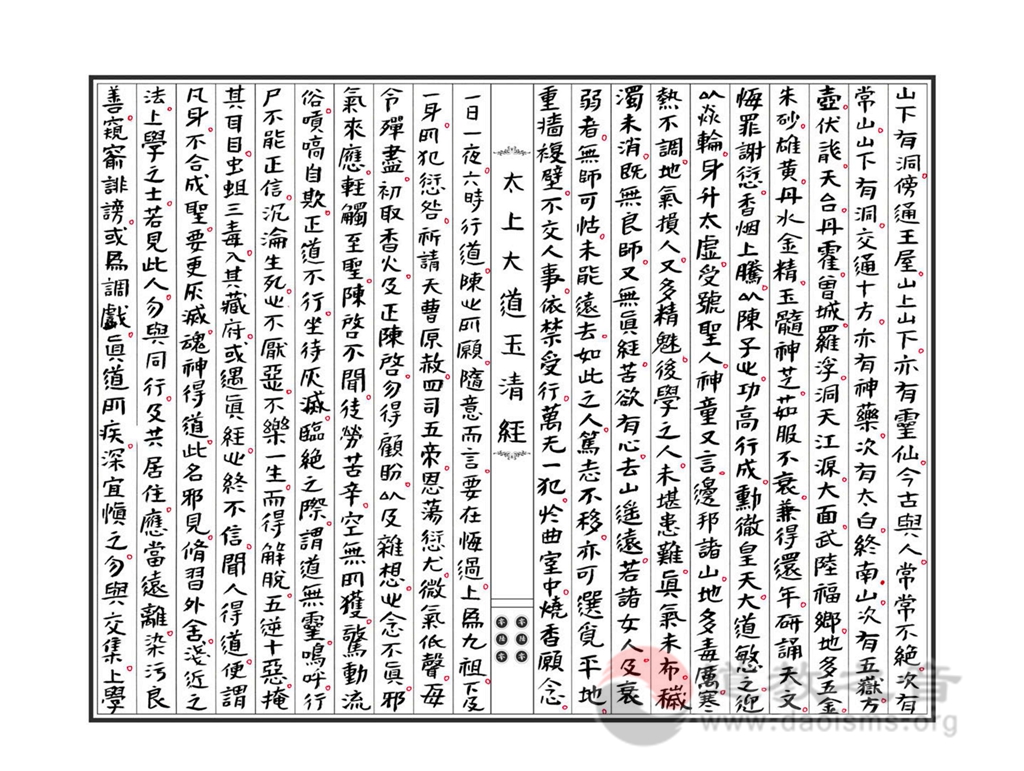 山下有洞傍通王屋山上山下亦有靈仙今古與人常常不絕次有
常山山下有洞交通十方亦有神藥次有太白終南山次有五嶽方
壺伏龍天台丹霍曾城羅浮洞天江源大面武陸福鄉地多五金
朱砂雄黃丹水金精玉髓神芝茹服不衰兼得還年研誦天文
悔罪謝愆香烟上騰以陳子心功高行成勳徹皇天大道愍之迎
以焱輪身升太虛受號聖人神童又言邊邦諸山地多毒厲寒
熱不調地氣損人又多精魅後學之人未堪患難真氣未布穢
濁未消既無良師又無真經苦欲有心去山遙遠若諸女人及衰
弱者無師可怙未能遠去如此之人篤志不移亦可選覓平地
重牆複壁不交人事依禁受行萬无一犯於曲室中燒香願念
太上大道玉清經
一日一夜六時行道陳心所願隨意而言要在悔過上為九祖下及
一身所犯愆咎祈請天曹原赦四司五帝恩蕩愆尤微氣低聲毋
令殫盡初取香火及正陳啓勿得顧盼以及雜想心念不真邪
氣來應輕觸至聖陳啓不聞徒勞苦辛空無所獲驚動流
俗嘖嗃自欺正道不行坐待灰滅臨絕之際謂道無靈鳴呼行
尸不能正信沉淪生死心不厭惡不樂一生而得解脫五逆十惡掩
其耳目虫蛆三毒入其藏府或遇真經心終不信聞人得道便謂
凡身不合成聖要更灰滅魂神得道此名邪見脩習外舍淺近之
法上學之士若見此人勿與同行及共居住應當遠離染污良
善窺窬誹謗或為調戲真道所疾深宜慎之勿與交集上學
道教之音
www.daoisms.org